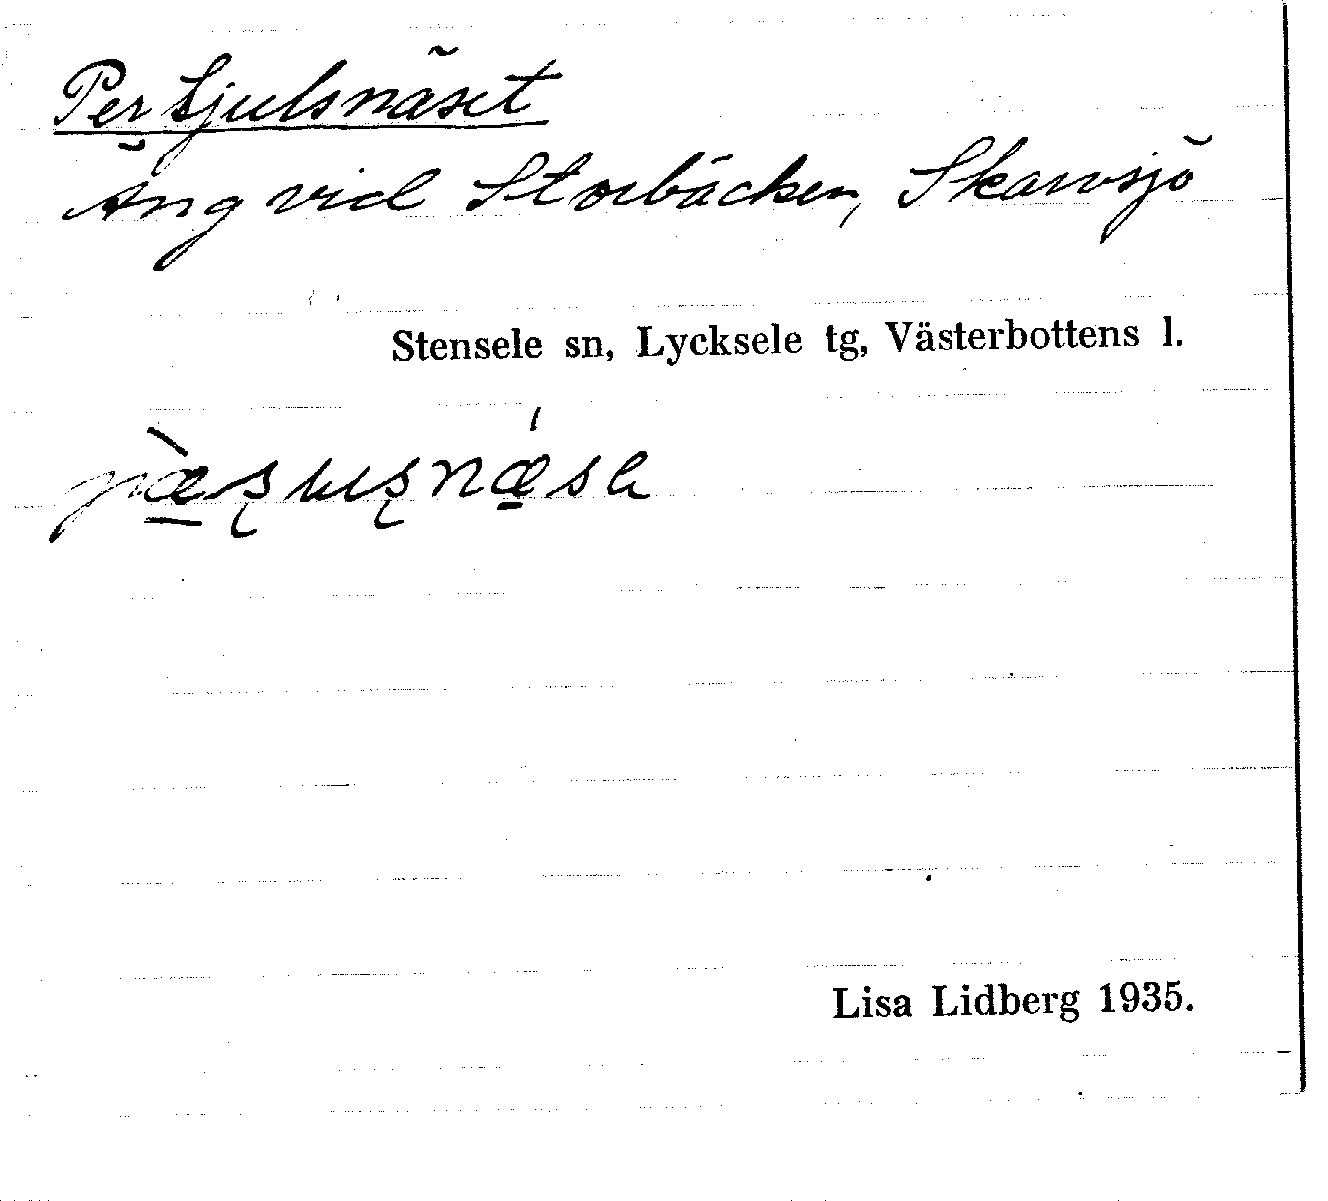 Per Sjulsnäset
Äng vid Storbäcken, Skarvsjö
Stensele sn, Lycksele tg, Västerbottens l.
Lisa Lidberg 1935.